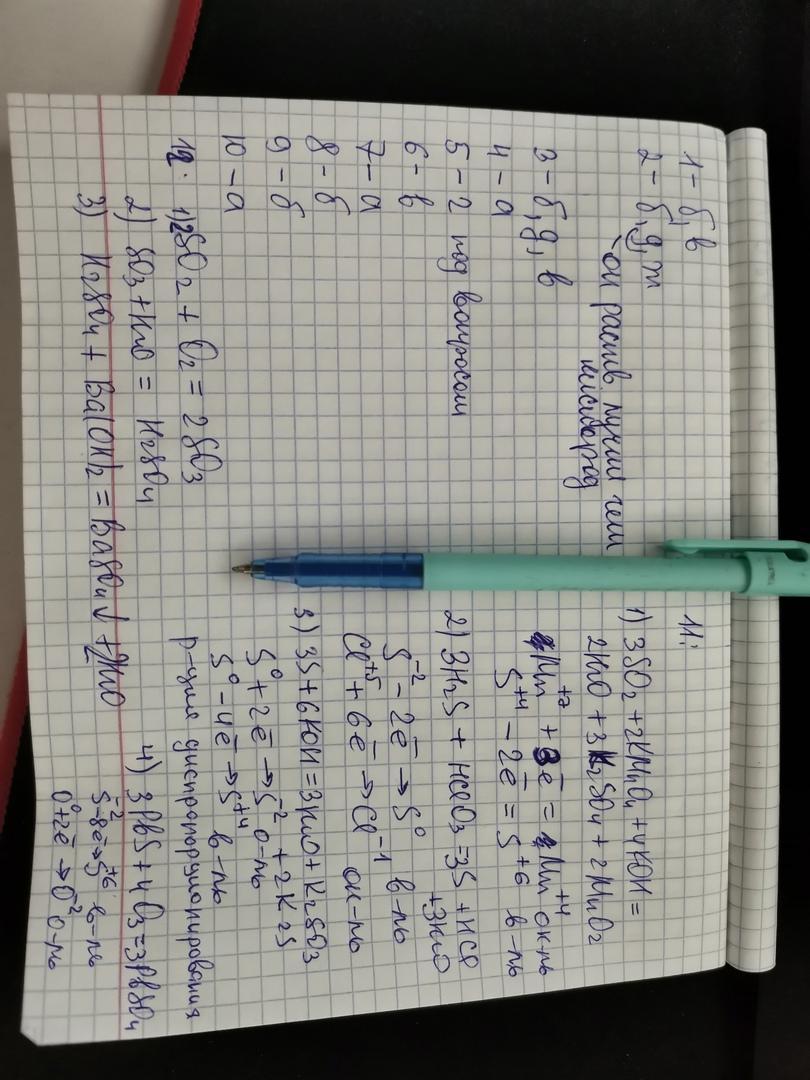 1 – б, в
2 – б, д, т
– он раств. лучше чем
кислород
3 – б, д, в
4 – а
5 – г под вопросом
6 – в
7 – а
8 – б
9 – б
10 – а
12. 1) 2SO2 + O2 = 2SO3
2) SO3 + H2O = H2SO4
3) H2SO4 + Ba(OH)2 = BaSO4↓ + 2H2O
11:
1) 3SO2 + 2KMnO4 + 4KOH =
2H2O + 3K2SO4 + 2MnO2
Mn+7 + 3e̅ = Mn+4 ок-ль
S+4 – 2e̅ = S+6 в-ль
2) 3H2S + HClO3 = 3S + HCl
+ 3H2O
S-2 – 2e̅ → S0 в-ль
Cl+5 + 6e̅ → Cl-1 ок-ль
3) 3S + 6KOH = 3H2O + K2SO3
+ 2K2S
S0 + 2e̅ → S-2 о-ль
S0 – 4e̅ → S+4 в-ль
р-ция диспропорционирования
4) 3PbS + 4O3 = 3PbSO4
S-2 – 8e̅ → S+6 в-ль
O0 + 2e̅ → O-2 о-ль